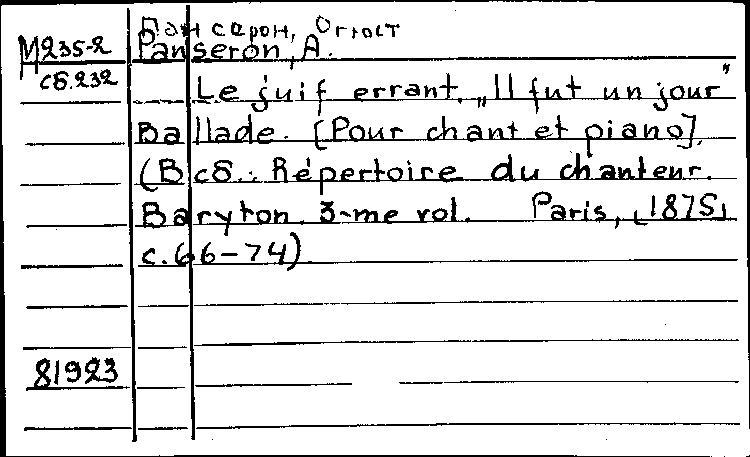 Пансерон, Огюст
М235-2 Panseron, A.
сб.232
Le juif errant. „Il fut un jour"
Ballade. [Pour chant et piano].
(В сб.: Répertoire du chanteur.
Baryton. 3-me vol. Paris, [1875]
с. 66-74).
81923